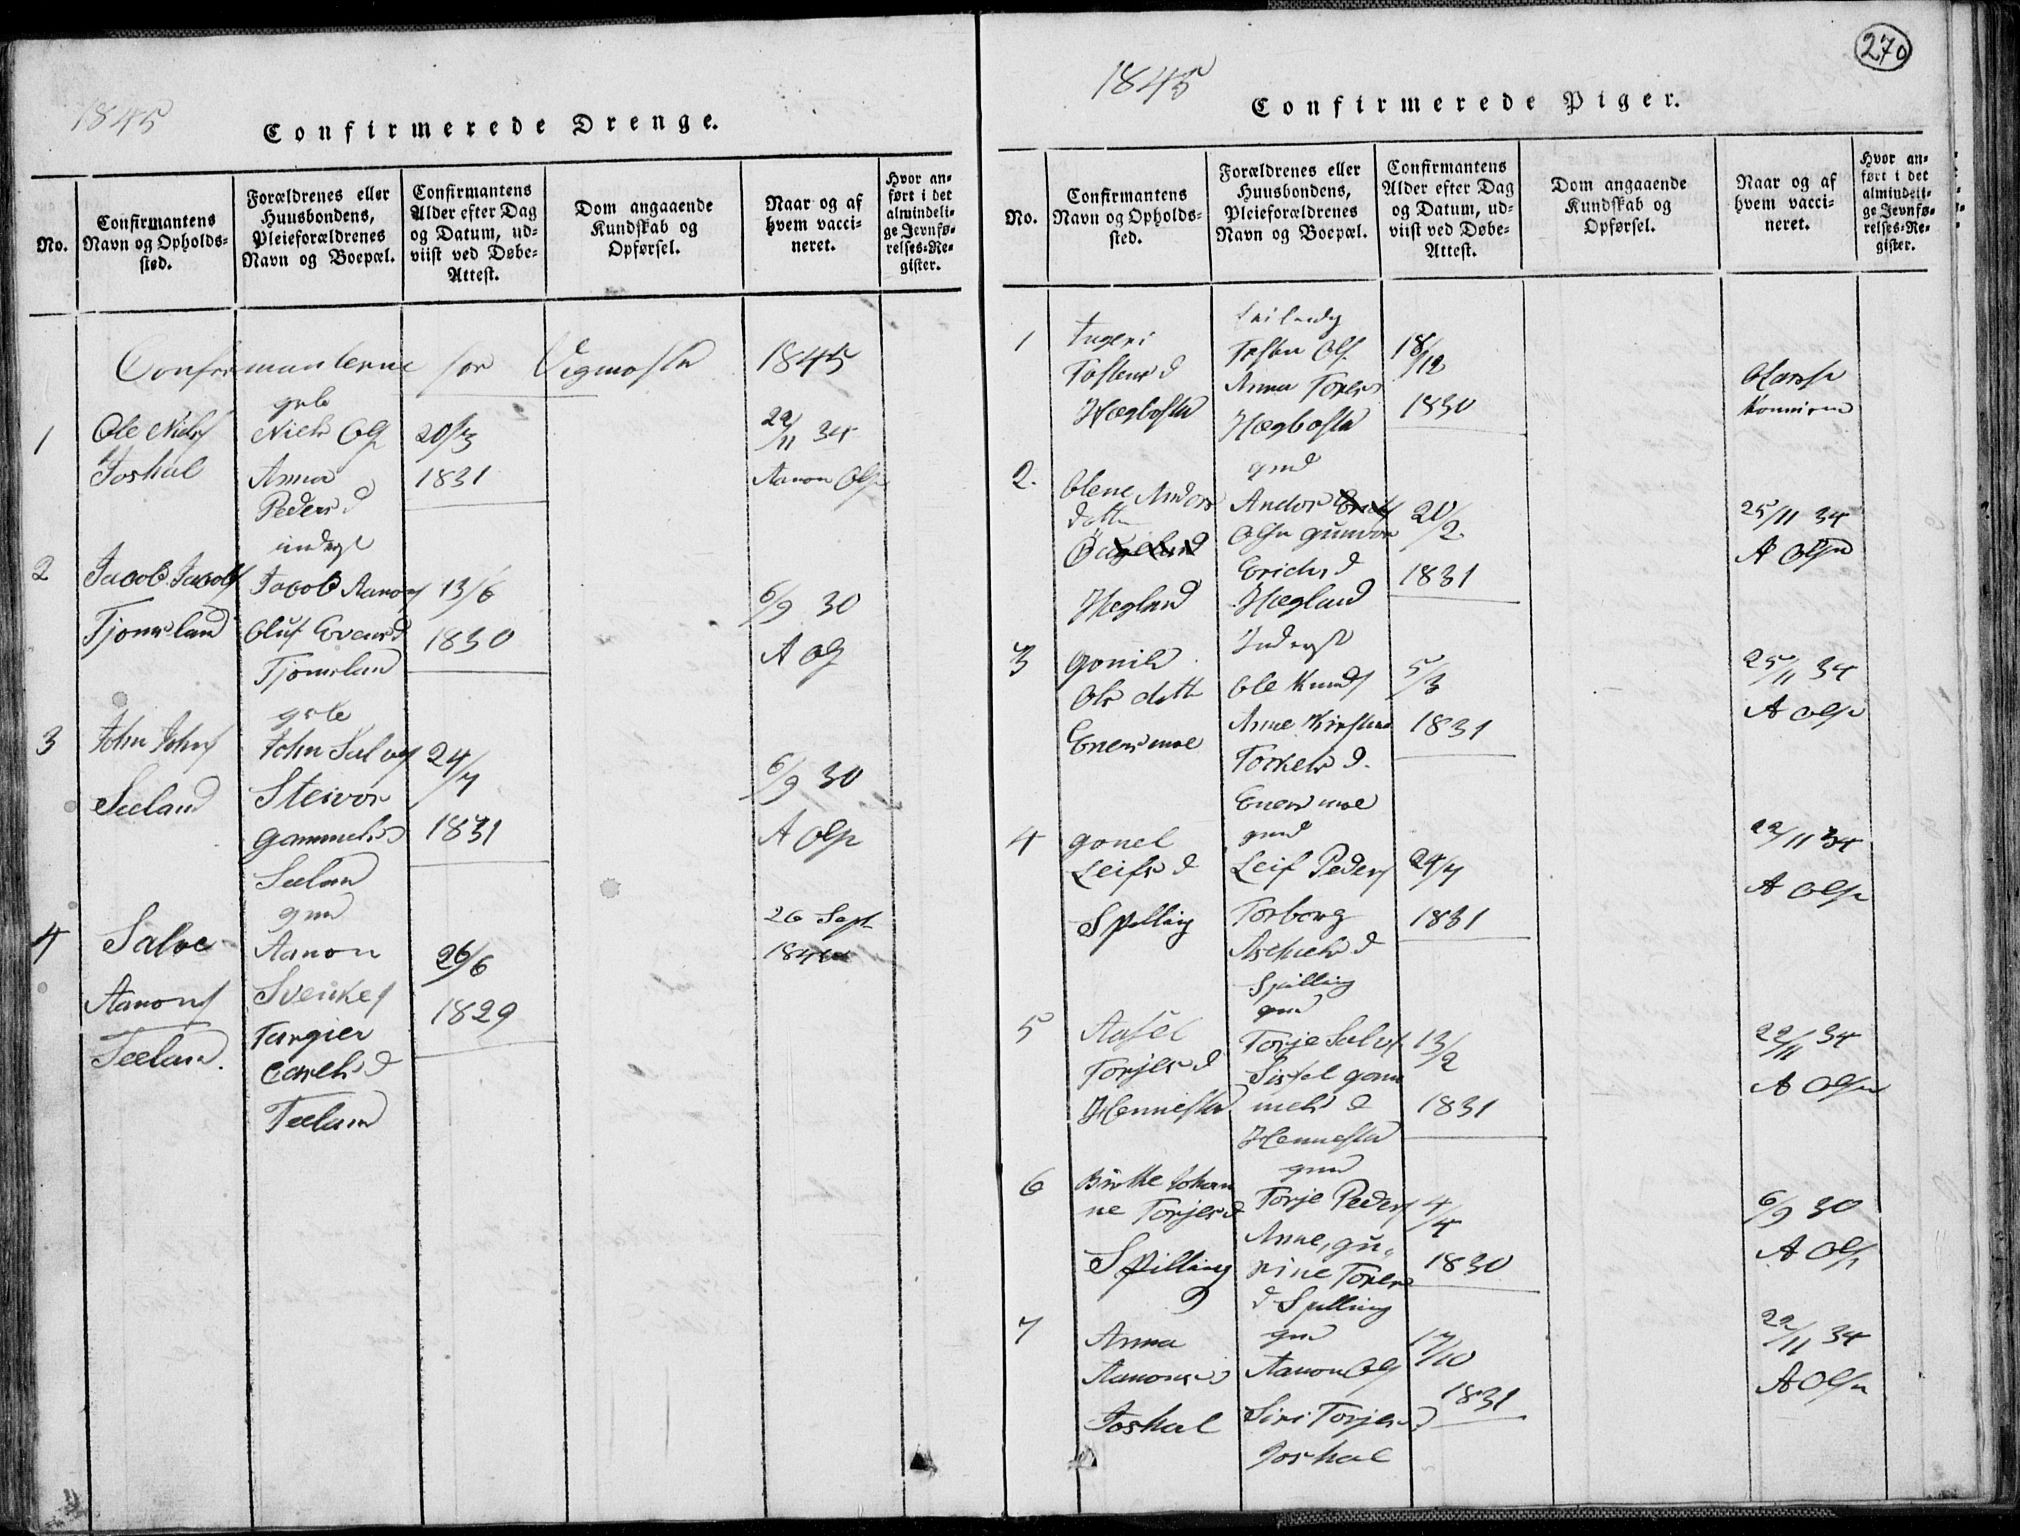 1845
Confirmerede Drenge.
No.
Confirmantens
Navn og Opholds-
sted.
Forældrenes eller
Huusbondens,
Pleieforældrenes
Navn og Boepæl.
Confirmantens
Alder efter Dag
og Datum, ud-
viist ved Døbe-
Attest.
Dom angaaende
Kundskab og
Opførsel.
Naar og af
hvem vacci-
neret.
Hvor an-
ført i det
almindeli-
ge Jevnfø-
relses-Re-
gister.
Confirmanterne for Vigmostad 1845
1
Ole Niels
Foshal
Niels Ols
Anna
Peders d
20/3
1831
22/11 34
Aanon Ols
2
Jacob Jacobs
Tjomsland
Jacob Aanons
Oluf Evens d
Tjomsland
13/6
1830
6/9 30
A Ols
3
John Johns
Seeland
John Salves
Steivor
Gammels d
Seeland
24/7
1831
6/9 30
A Olsen
4
Salve
Aanons
Teeland.
gmd
Aanon
Svenkes
Targier
Carels d
Teeland
26/6
1829
26 Sept
270
1845
Confirmerede Piger.
No.
Confirmantens
Navn og Opholds-
sted.
Forældrenes eller
Huusbondens,
Pleieforældrenes
Navn og Boepæl.
Confirmantens
Alder efter Dag
og Datum, ud-
viist ved Døbe-
Attest.
Dom angaaende
Kundskab og
Opførsel.
Naar og af
hvem vacci-
neret.
Hvor an-
ført i det
almindeli-
ge Jevnfø-
relses-Re-
gister.
1
Ingeri
Tostens d
Hægbostad
Tosten Ols
Anna Tores d
Hægbostad
18/12
1830
2.
Olene Anders
datter
Hægland
gmd
Anders
Olsen Gunvor
Erichs d
Hægland
21/2
1831
25/11 34
A Olsen
3
Gonild
Ols datter
Eneesmoe
Inderst
Ole Knuds
Anne Kirstine
Torkels d.
Eneesmoe
5/3
1831
25/11 34
A Olsen
4
Gonel
Leifs d
Spilling
gmd
Leif Peders
Torborg
Aschiels d
Spilling
24/7
1831
22/11 34
A Olsen
5
Aasel
Torjes d
Hennestad
gmd
Torje Salves
Sissel Gom
mels d
Hennestad
13/2
1831
22/11 34
A Olsen
6
Birthe Johan
ne Torjes d
Spilling
gmd
Torje Peders
Anne, Gu-
rine Tores
d Spilling
4/4
1830
6/9 30
A Ols
7
Anna
Aanons d
Foshal
gmd
Aanon Ols
Siri Torjes d
Foshal
17/10
1831
22/11 34
A Olsen